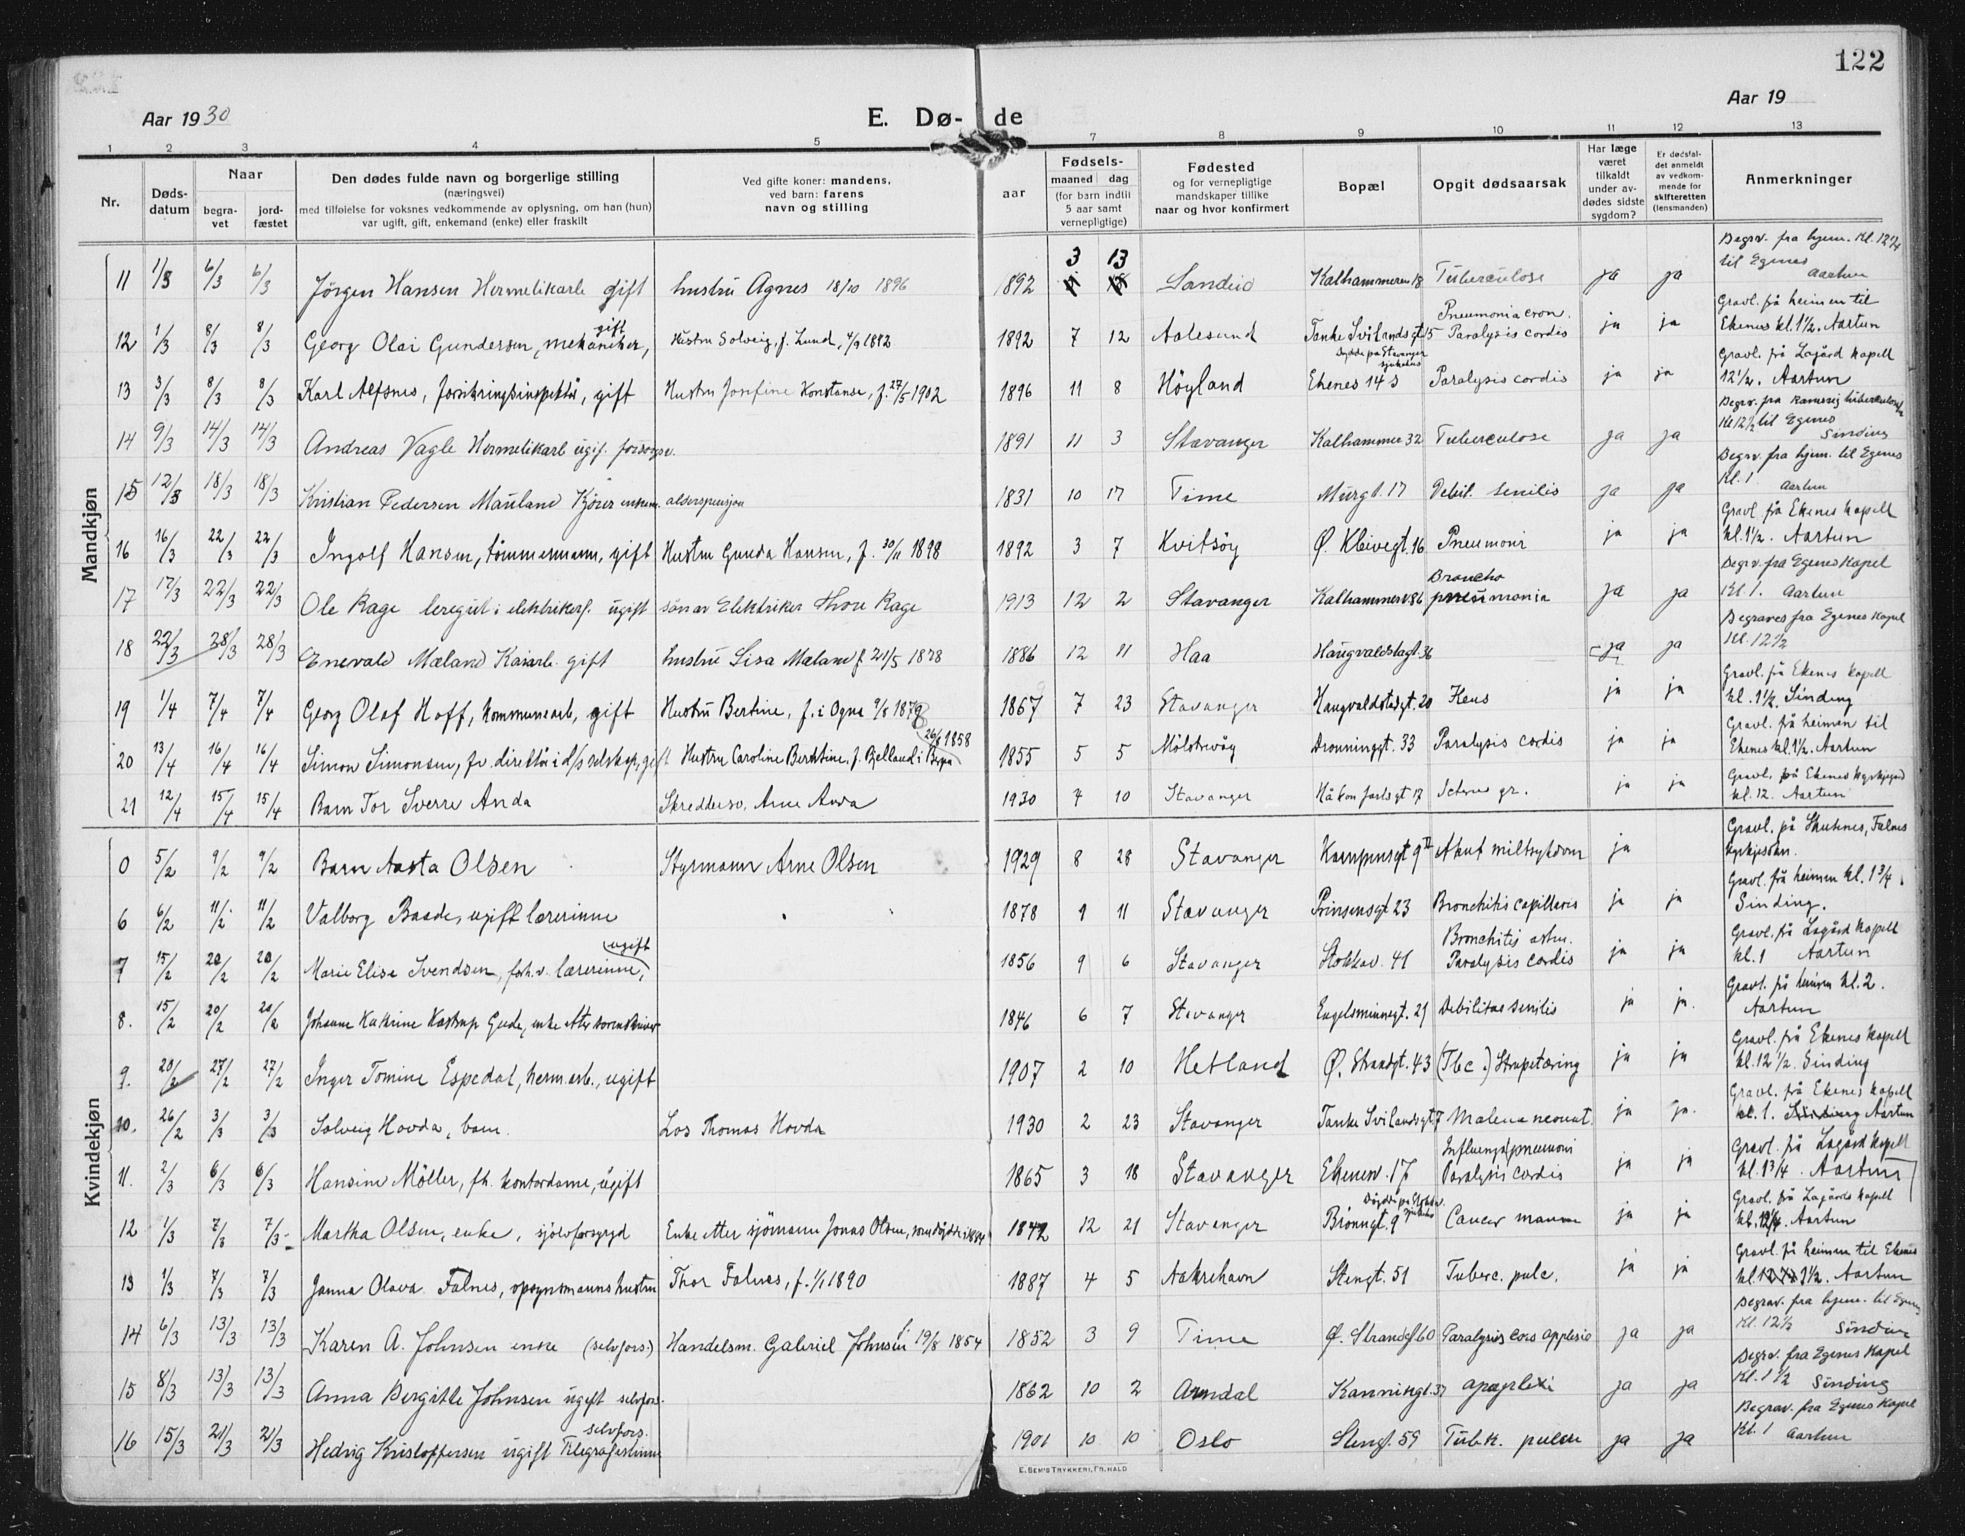 122
Aar 1930
E. Dø- de
Aar 19
1 2 3 4 5 7 8 9 10 11 12 13
Nr.
Døds-datum
Naar
begra-vet
jord-fæstet
Den dødes fulde navn og borgerlige stilling
(næringsvei)
med tilføielse for voksnes vedkommende av oplysning, om han (hun)
var ugift, gift, enkemand (enke) eller fraskilt
Ved gifte koner: mandens,
ved barn: farens
navn og stilling
Fødsels-
aar
maaned dag
(for barn indtil
5 aar samt
vernepligtige)
Fødested
og for vernepligtige
mandskaper tillike
naar og hvor konfirmert
Bopæl
Opgit dødsaarsak
Har læge
været
tilkaldt
under av-
dødes sidste
sygdom?
Er dødsfal-
det anmeldt
av vedkom-
mende for
skifteretten
(lensmanden)
Anmerkninger
Mandkjøn
11 1/3 6/3 6/3 Jørgen Hansen Hermetikarb gift hustru Agnes 18/10 1896 1892 3 13 Sandeid Kalhammeren 18 Tuberculose ja ja Begrv. fra hjem. Kl. 12 1/4 til Egenes Aartun
12 1/3 8/3 8/3 Georg Olai Gundersen, mekaniker, gift Hustru Solveig, f. Lund, 4/9 1892 1892 7 12 Aalesund Tanke Svilandsgt 15 Pneumonia cron. Paralysis cordis ja ja Gravl. frå heimen til Ekenes kl. 1 1/2. Aartun
13 3/3 8/3 8/3 Karl Alfsnes, forsikringsinspektør, gift Hustru Josefine Konstanse, f. 27/5 1902 1896 11 8 Höyland Ekenes 143 Døde pa Stavanger sjukehus Paralysis cordis ja ja Gravl. frå Lagård kapell 12 1/2. Aartun
14 9/3 14/3 14/3 Andreas Vagle Hermetikarb ugif. forsorgsv. 1891 11 3 Stavanger Kalhammer 32 Tuberculose ja ja Begrv. fra kommunig tuberculosehj Kl 12 1/2 til Egenes Sinding
15 12/3 18/3 18/3 Kristian Pedersen Mauland Kjører enkem. alderspensjon 1831 10 17 Time Murgt. 17 Debil. senilis ja ja Begrv. fra hjem. til Egenes Kl. 1 Aartun
16 16/3 22/3 22/3 Ingolf Hansen, tömmermann, gift Hustru Gunda Hansen, f. 30/11 1898 1892 3 7 Kvitsöy Ø. Kleivegt. 16 Pneumoni ja ja Gravl. frå Ekenes kapell kl. 1 1/2. Aartun
17 17/3 22/3 22/3 Ole Rage leregut i elektrikerf. ugift sön av Elektriker Thore Rage 1913 12 2 Stavanger Kalhammerv 86 Broncho pneumonia ja ja Begrv. fra Egenes kapel Kl. 1. Aartun
18 22/3 28/3 28/3 Enevald Mæland Kaiarb gift hustru Lisa Mæland f 21/5 1878 1886 12 11 Haa Haugvaldstagt. 36 ja ja Begraves fra Egenes Kapel Kl. 12 1/2
19 1/4 7/4 7/4 Georg Olaf Hoff, kommunearb, gift Hustru Bertine, f. i Ogna 9/8 1879 1867 7 23 Stavanger Haugvaldstadgt. 20 Heus ja ja Gravl. på Ekenes kapell kl. 1 1/2 Sinding
20 13/4 16/4 16/4 Simon Simonsen, fv. direktör i d/s selskap, gift Hustru Caroline Berntine, f. Bjelland i Bergen 26/6 1858 1855 5 5 Molstrevåg Dronninggt. 33 Paralysis cordis ja ja Gravl. frå heimen til Ekenes kl. 1 1/2. Aartun
21 12/4 15/4 15/4 Barn Tor Sverre Anda Skreddersv. Arne Anda 1930 4 10 Stavanger Håkon jarlsgt 17 Icterus gr. ja ja Gravl. på Ekenes kyrkjegard kl. 12. Aartun
Kvindekjøn
0 5/2 9/2 9/2 Barn Aasta Olsen Styrmann Arne Olsen 1929 8 28 Stavanger Kornpensgt 9 II Akut miltsykdom ja Gravl. på Skutenes, Falnes kyrkjesokn.
6 6/2 11/2 11/2 Valborg Baade, ugift lærerinne 1878 9 11 Stavanger Prinsensgt 23 Bronchitis capillaris ja ja Gravl. frå heimen kl. 1 3/4. Sinding.
7 15/2 20/2 20/2 Marie Elise Svendsen, forh.v. lærerinne, ugift 1856 9 6 Stavanger Stokkav. 41 Bronchitis astm. Paralysis cordis ja ja Gravl. frå Lagård kapell kl. 1 Aartun
8. 15/2 20/2 20/2 Johanne Katrine Kastrup Gude, enke etter sorenskriver 1846 6 7 Stavanger Engelsminnegt. 29 Debilitas senilis ja ja. Gravl. frå heimen kl. 2. Aartun
9. 20/2 27/2 27/2 Inger Tomine Espedal, herm.arb., ugift 1907 2 10 Hetland Ø. Strandgt. 43 (Tbc.) Strupetæring ja ja Gravl. frå Ekenes kapell kl. 12 1/2. Sinding
10. 26/2 3/3 3/3 Solveig Hovda, barn. Los Thomas Hovda 1930 2 23 Stavanger Tanke Svilandsgt. 7 Malena neonat. ja ja. Gravl. frå Ekenes kapell kl. 1. Sinding Aartun
11. 2/3 6/3 6/3 Hansine Möller, fh. kontordame, ugift 1865 3 18 Stavanger Ekenesv. 17 Influenza pneumoni Paralysis cordis ja ja Gravl. frå Lagård kapell kl. 1 3/4. Aartun
12 1/3 7/3 7/3 Martha Olsen, enke, sjölvforsyrgd Enke etter sjömann Jonas Olsen, som døydde i 1884 1842 12 21 Stavanger Brönngt. 9 Cancer mamm ja ja Gravl. frå Lagårds kapell kl. 12 1/4. Aartun
13 1/3 7/3 7/3 Janna Olava Falnes, opsynsmannshustru Thor Falnes, f. 1/1 1890 1887 4 5 Aakrehavn Stengt. 51 Tuberc. pulc. ja ja Gravl. frå heimen til Ekenes kl. 1 1/2. Aartun
14 6/3 13/3 13/3 Karen A. Johnsen enke (selvfors.) Handelsm. Gabriel Johnsen f. 19/8 1854 1852 3 9 Time Ø. Strandgt 60 Paralysis cors applexia ja ja Begrav. fra hjem. til Egenes Kl. 12 1/2 Sinding
15 8/3 13/3 13/3 Anna Bergitte Johnsen ugift selvfors. 1862 10 2 Arendal Kanningt. 37 apoplexi ja ja Begrv. fra Egenes Kapel Kl. 1 1/2 Sinding
16 15/3 21/3 21/3 Hedvig Kristoffersen ugift Telegrafistinne selvfors. 1901 10 10 Oslo Stengt. 59 Tub.k. pulm ja ja Begrav. fra Egenes Kapel Kl. 1 Aartun
E. SEM'S TRYKKERI, FR.HALD